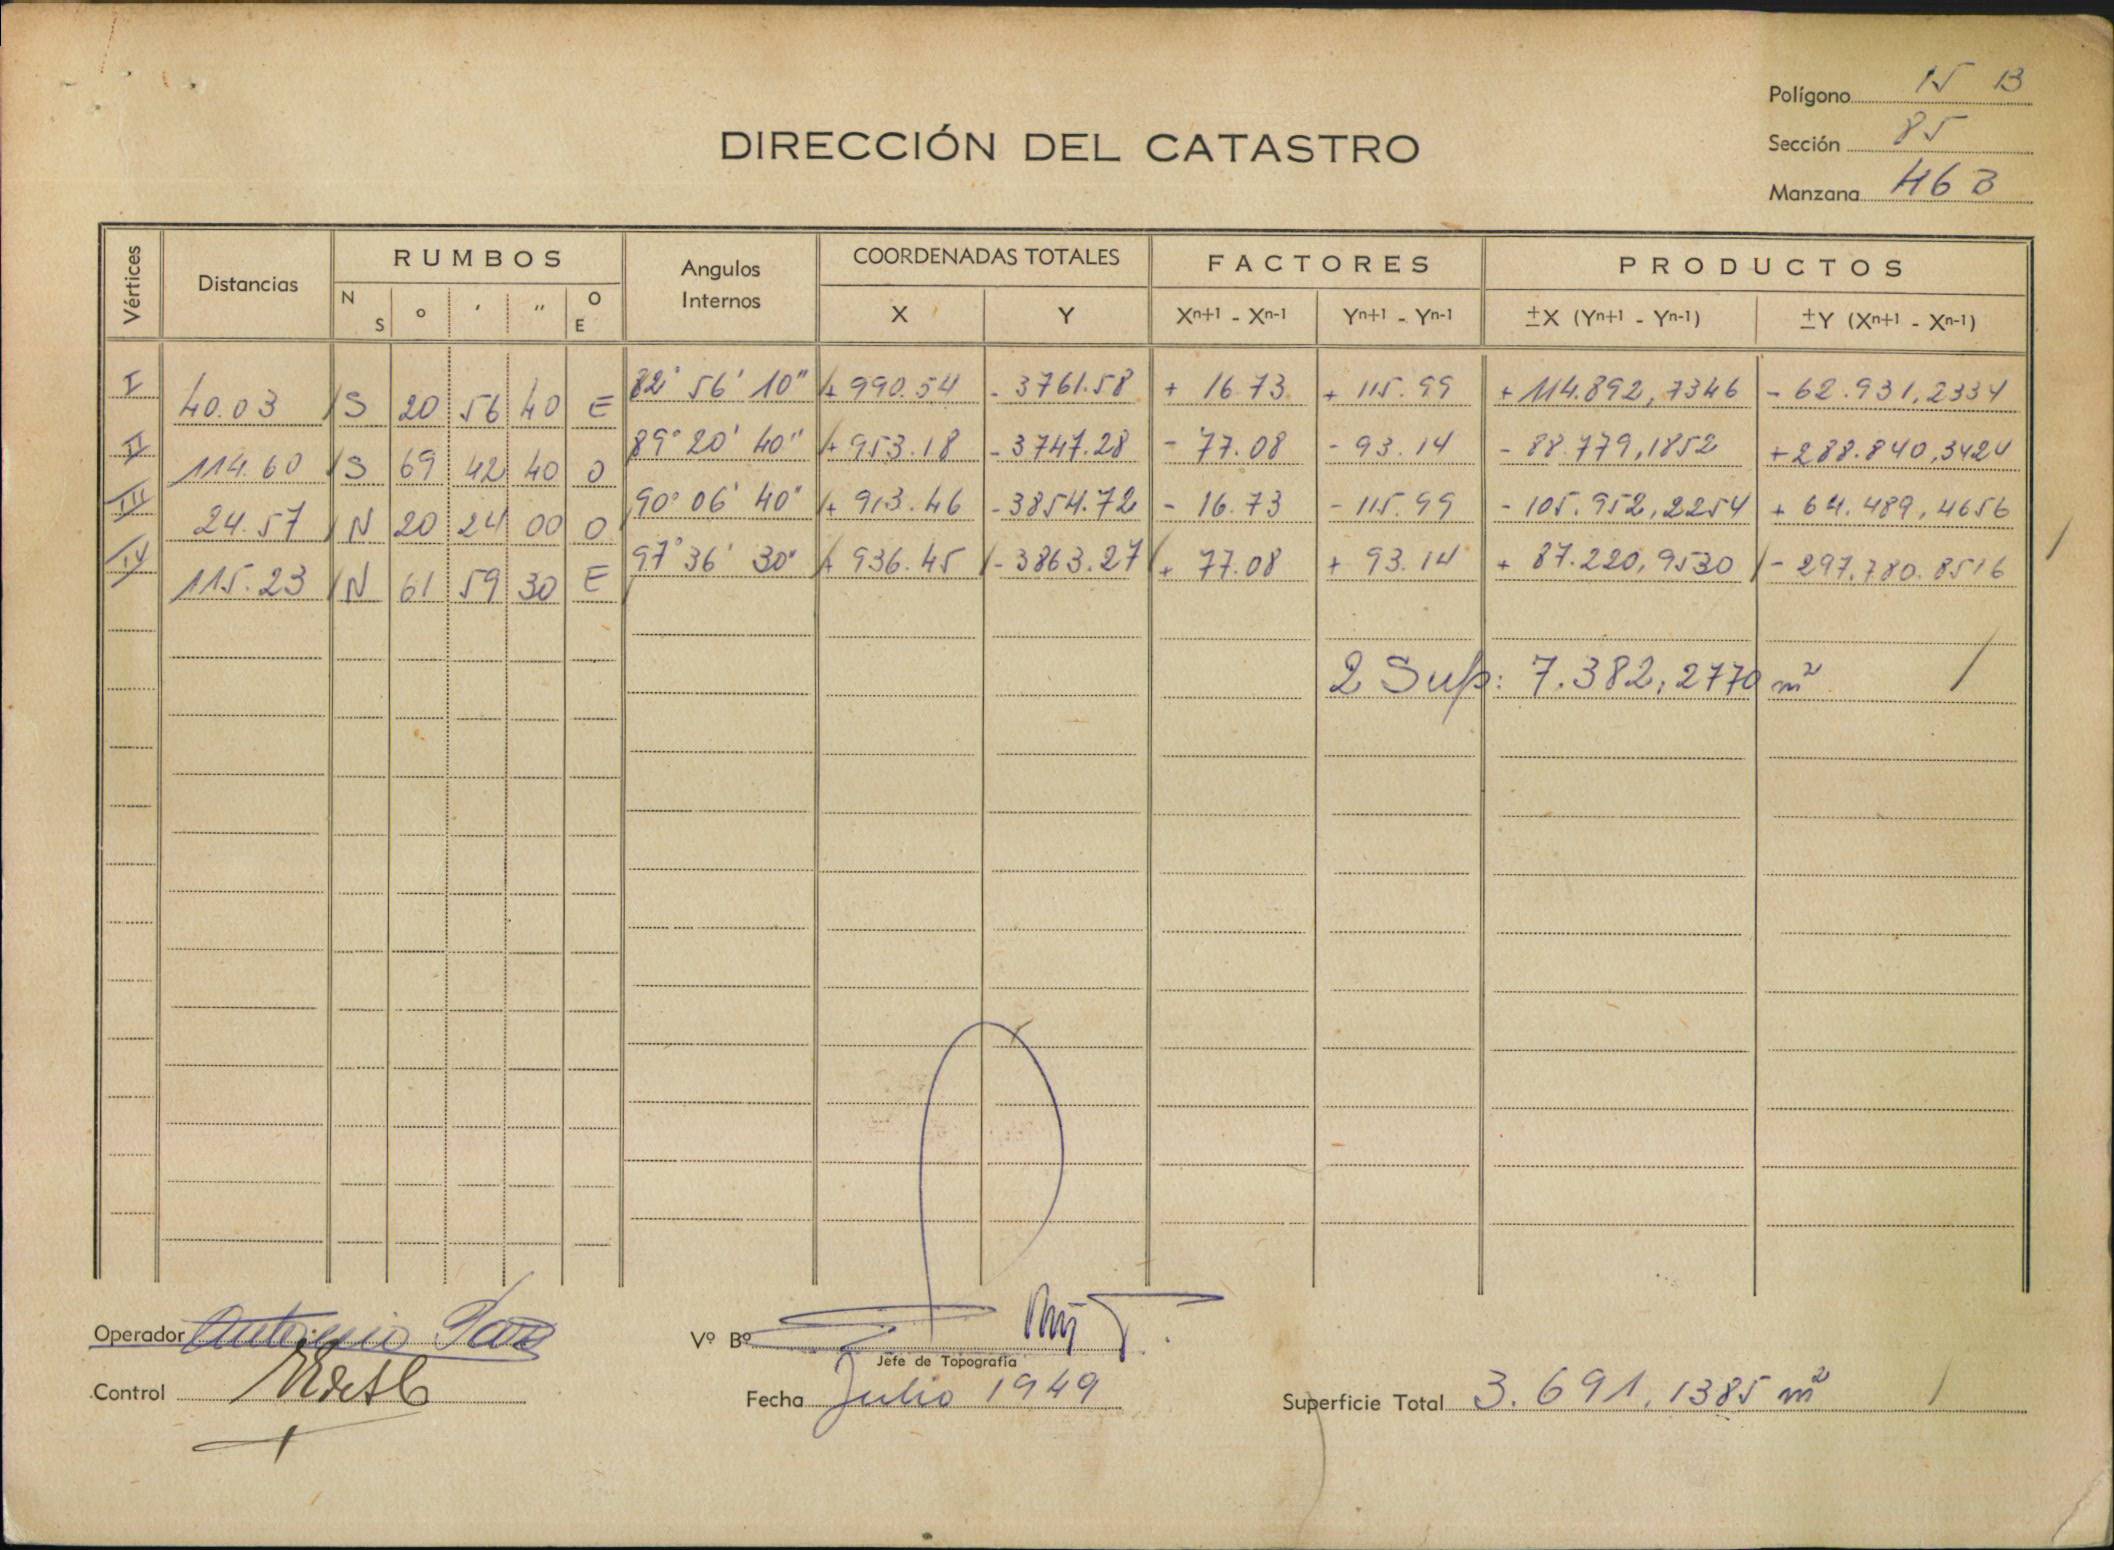 Polígono 15 B
DIRECCIÓN DEL CATASTRO
Sección 85
Manzana 46 B
Vértices Distancias RUMBOS Angulos Internos COORDENADAS TOTALES FACTORES PRODUCTOS
N S ° ' " O E X Y Xn+1 - Xn-1 Yn+1 - Yn-1 ±X (Yn+1 - Yn-1) ±Y (Xn+1 - Xn-1)
I 82° 56' 10" + 990.54 - 3761.58 + 16.73 + 115.99 + 114.892,7346 - 62.931,2334
40.03 S 20 56 40 E
II 89° 20' 40" + 953.18 - 3747.28 - 77.08 - 93.14 - 88.779,1852 + 288.840,3424
114.60 S 69 42 40 O
III 90° 06' 40" + 913.46 - 3854.72 - 16.73 - 115.99 - 105.952,2254 + 64.489,4656
24.57 N 20 24 00 O
IV 97° 36' 30" + 936.45 - 3863.27 + 77.08 + 93.14 + 87.220,9530 - 297.780.8516
115.23 N 61 59 30 E
2 Sup: 7.382,2770 m²
Operador Antonio
Vº Bº
Jefe de Topografía
Control
Fecha Julio 1949
Superficie Total 3.691,1385 m²